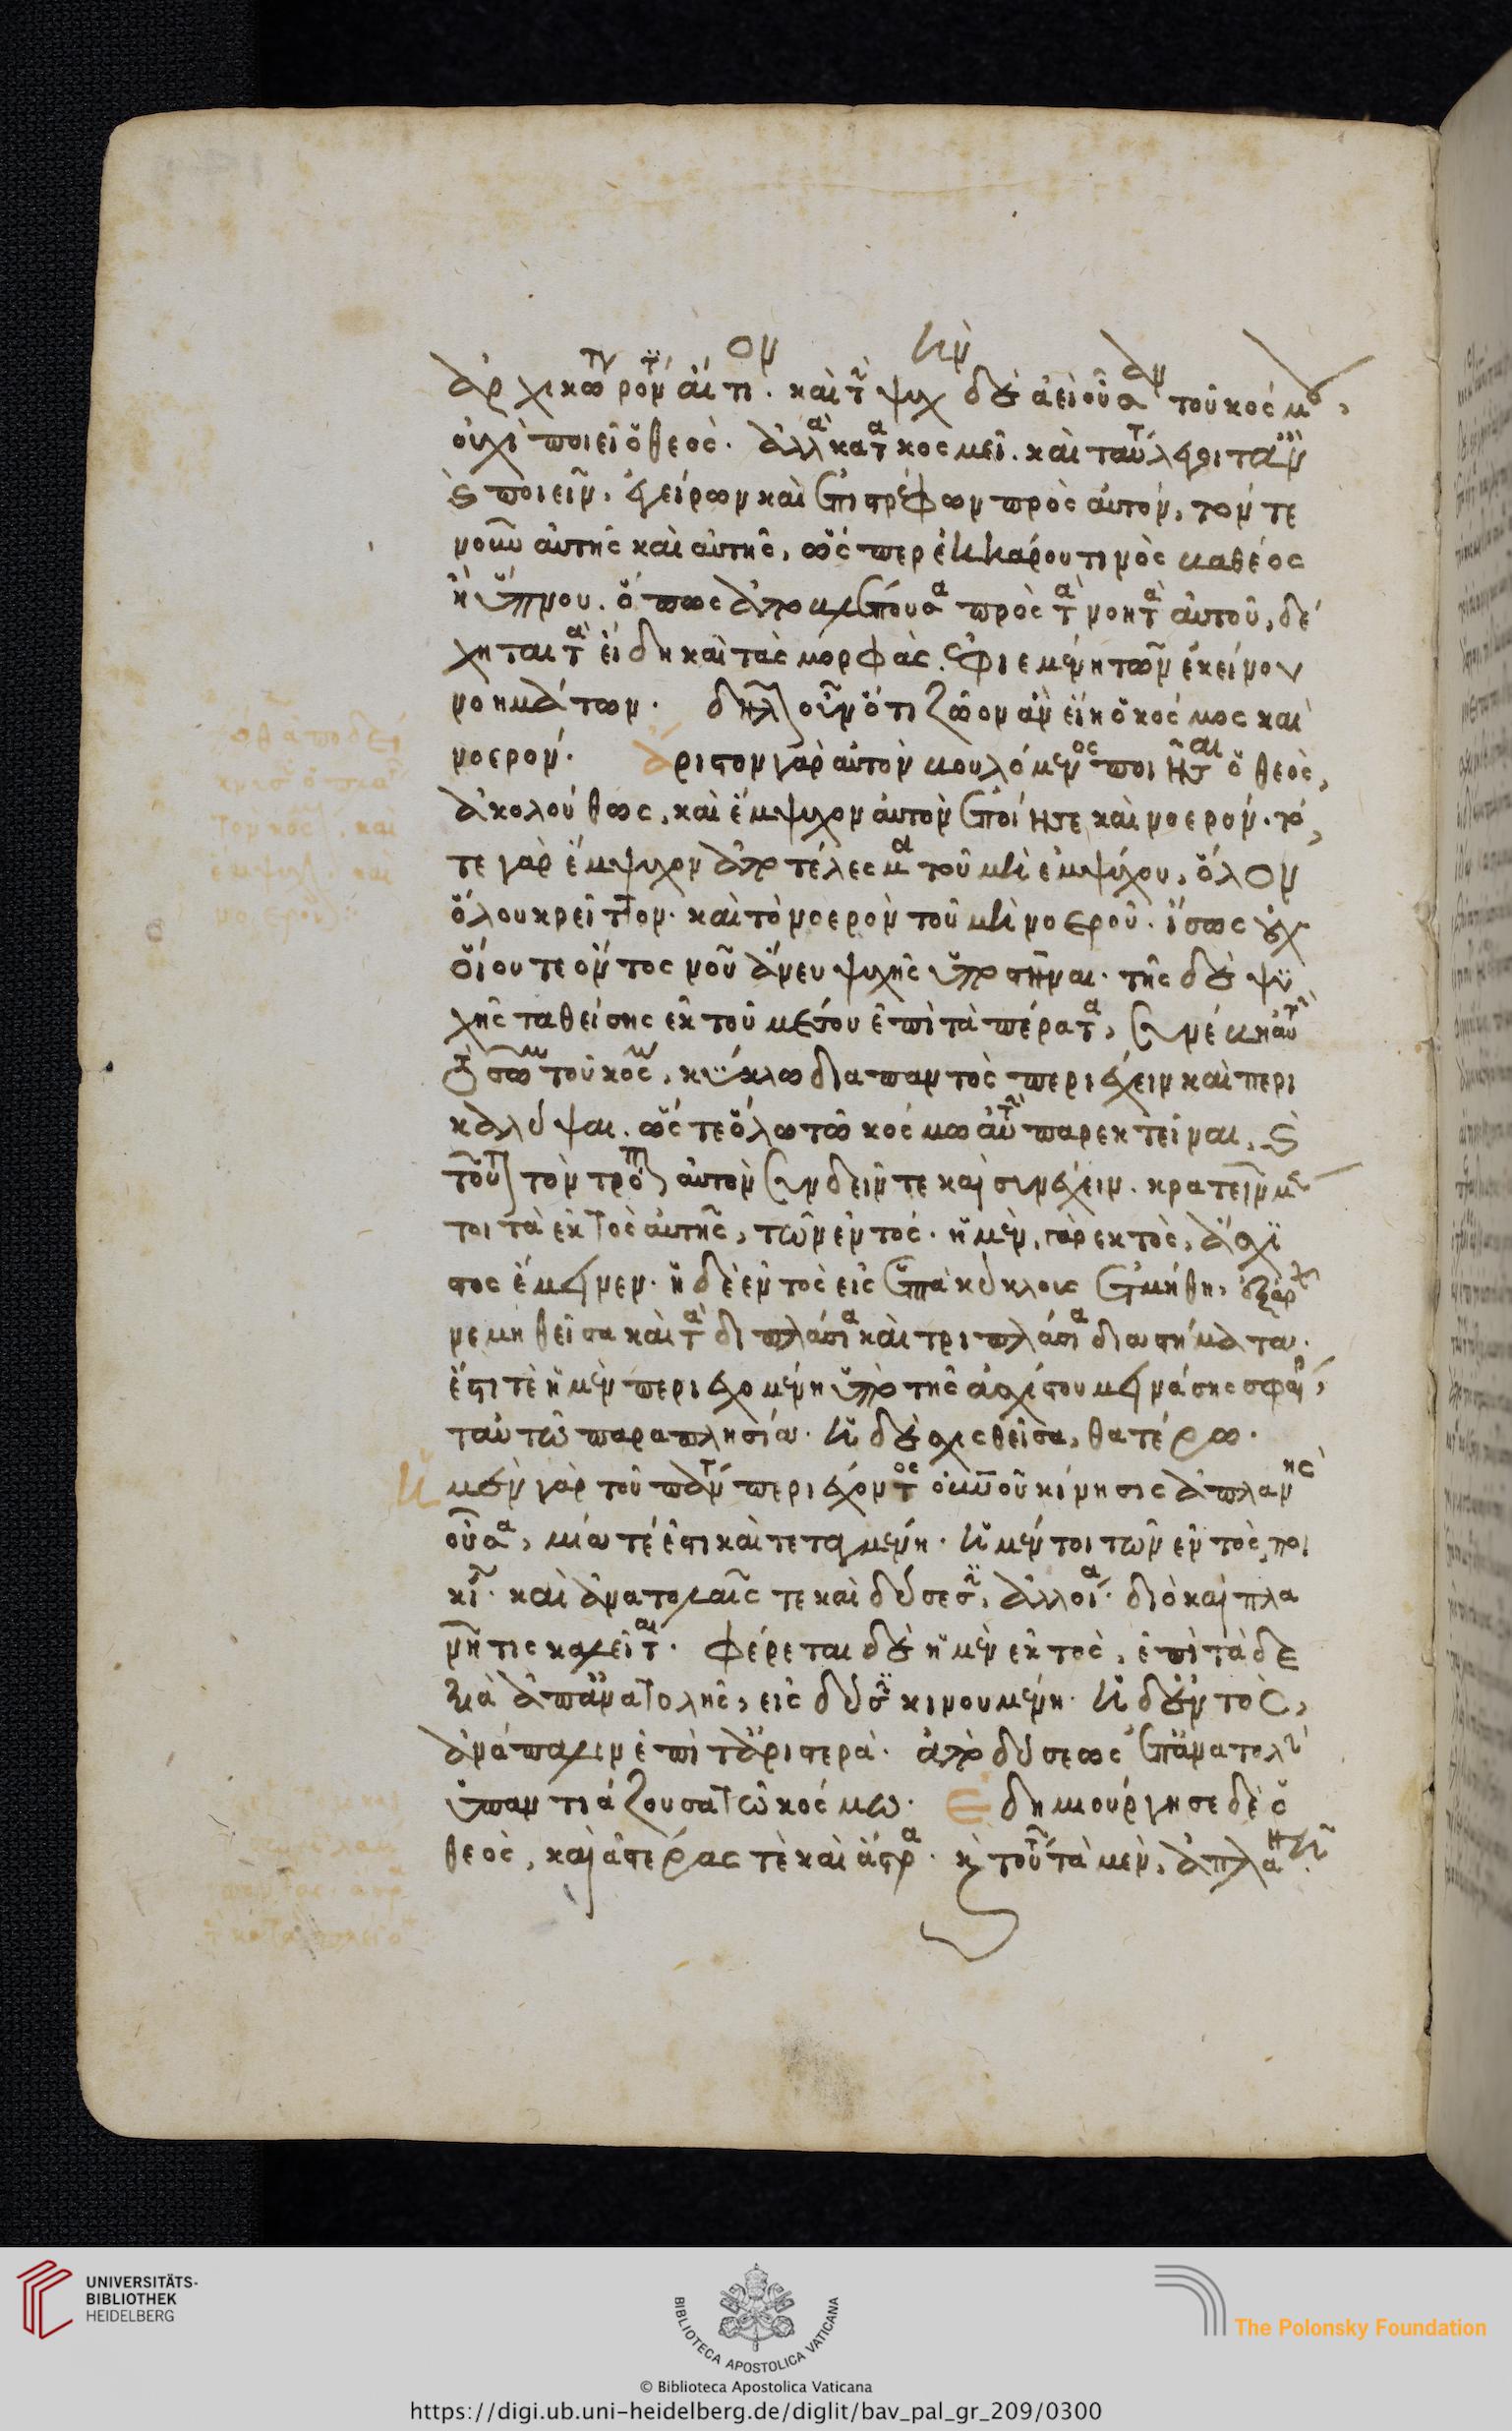 ἀρχικώτερόν τι αἴτιον. καὶ τὴν ψυχὴν δὲ ἀεὶ οὖσαν τοῦ κόσμου,
οὐχὶ ποιεῖ ὁ θεὸς. ἀλλὰ κατακοσμεῖ. καὶ ταύτη λέγοιτ' ἂν
καὶ ποιεῖν, ἐγείρων καὶ ἐπιστρέφων πρὸς αὑτόν, τόν τε
νοῦν αὐτῆς καὶ αὐτῆς, ὥσπερ ἐκ κάρου τινὸς βαθέος
ἢ ὕπνου. ὅπως ἀποβλέπουσα πρὸς τὰ νοητὰ αὐτοῦ, δέ
χηται τὰ εἴδη καὶ τὰς μορφὰς. ἐφιεμένη τῶν ἐκείνου
νοημάτων. δῆλον οὖν ὅτι ζῶον ἂν εἴη ὁ κόσμος καὶ
νοερόν. ἄριστον γὰρ αὐτὸν βουλόμενος ποιῆσαι ὁ θεὸς,
ἀκολούθως, καὶ ἔμψυχον αὐτὸν ἐποίησε καὶ νοερόν. τό
τε γὰρ ἔμψυχον ἀποτέλεσμα τοῦ μὴ ἐμψύχου, ὅλον
ὅλου κρεῖττον. καὶ τὸ νοερὸν τοῦ μὴ νοεροῦ. ἴσως οὐχ
οἵου τε ὄντος νοῦ ἄνευ ψυχῆς ὑποστῆναι. τῆς δὲ ψυ
χῆς ταθείσης ἐκ τοῦ μέσου ἐπὶ τὰ πέρατα, συνέβη αὐτὴν
τὸ σῶμα τοῦ κόσμου, κύκλω διαπαντὸς περιέχειν καὶ περι
καλύψαι. ὥστε ὅλω τῶ κόσμω αὐτὴν παρεκτεῖναι, καὶ
τοῦτον τὸν τρόπον αὐτὸν συνδεῖν τε καὶ συνέχειν. κρατεῖν μέν
τοι τὰ ἐκτὸς αὐτῆς, τῶν ἐντός. ἡ μὲν γὰρ ἐκτὸς, ἄσχι
στος ἔμεινεν. ἡ δὲ ἐντὸς εἰς ἑπτὰ κύκλους ἐτμήθη, ἐξ ἀρχῆς
νεμηθεῖσα κατὰ διπλάσια καὶ τριπλάσια διαστήματα.
ἔστι τὲ ἡ μὲν περιεχομένη ὑπὸ τῆς ἀσχίστου μεινάσης σφαίρας,
ταὐτῶ παραπλησία. ἡ δὲ σχισθεῖσα, θατέρω.
ἡ μὲν γὰρ τοῦ πάντα περιέχοντος οὐνοῦ κίνησις ἀπλανὴς
οὖσα, μία τέ ἐστι καὶ τεταγμένη. ἡ μέντοι τῶν ἐντὸς, ποι
κίλη. καὶ ἀνατολαῖς τε καὶ δύσεσιν, ἀλλοία. διὸ καὶ πλα
νῆτις καλεῖται. φέρεται δὲ ἡ μὲν ἐκτὸς, ἐπὶ τὰ δε
ξιὰ ἀπ' ἀνατολῆς, εἰς δύσιν κινουμένη. ἡ δ' ἐντὸς,
ἀνάπαλιν ἐπὶ τἀριστερὰ. ἀπὸ δύσεως ἐπ' ἀνατολὴν
ὑπαντιάζουσα τῶ κόσμω. ἐδημιούργησε δὲ ὁ
θεὸς, καὶ ἀστέρας τὲ καὶ ἄστρα. καὶ τούτων τὰ μὲν, ἀπλανῆ
UNIVERSITÄTS-
BIBLIOTHEK
HEIDELBERG
BIBLIOTECA APOSTOLICA VATICANA
© Biblioteca Apostolica Vaticana
The Polonsky Foundation
https://digi.ub.uni-heidelberg.de/diglit/bav_pal_gr_209/0300